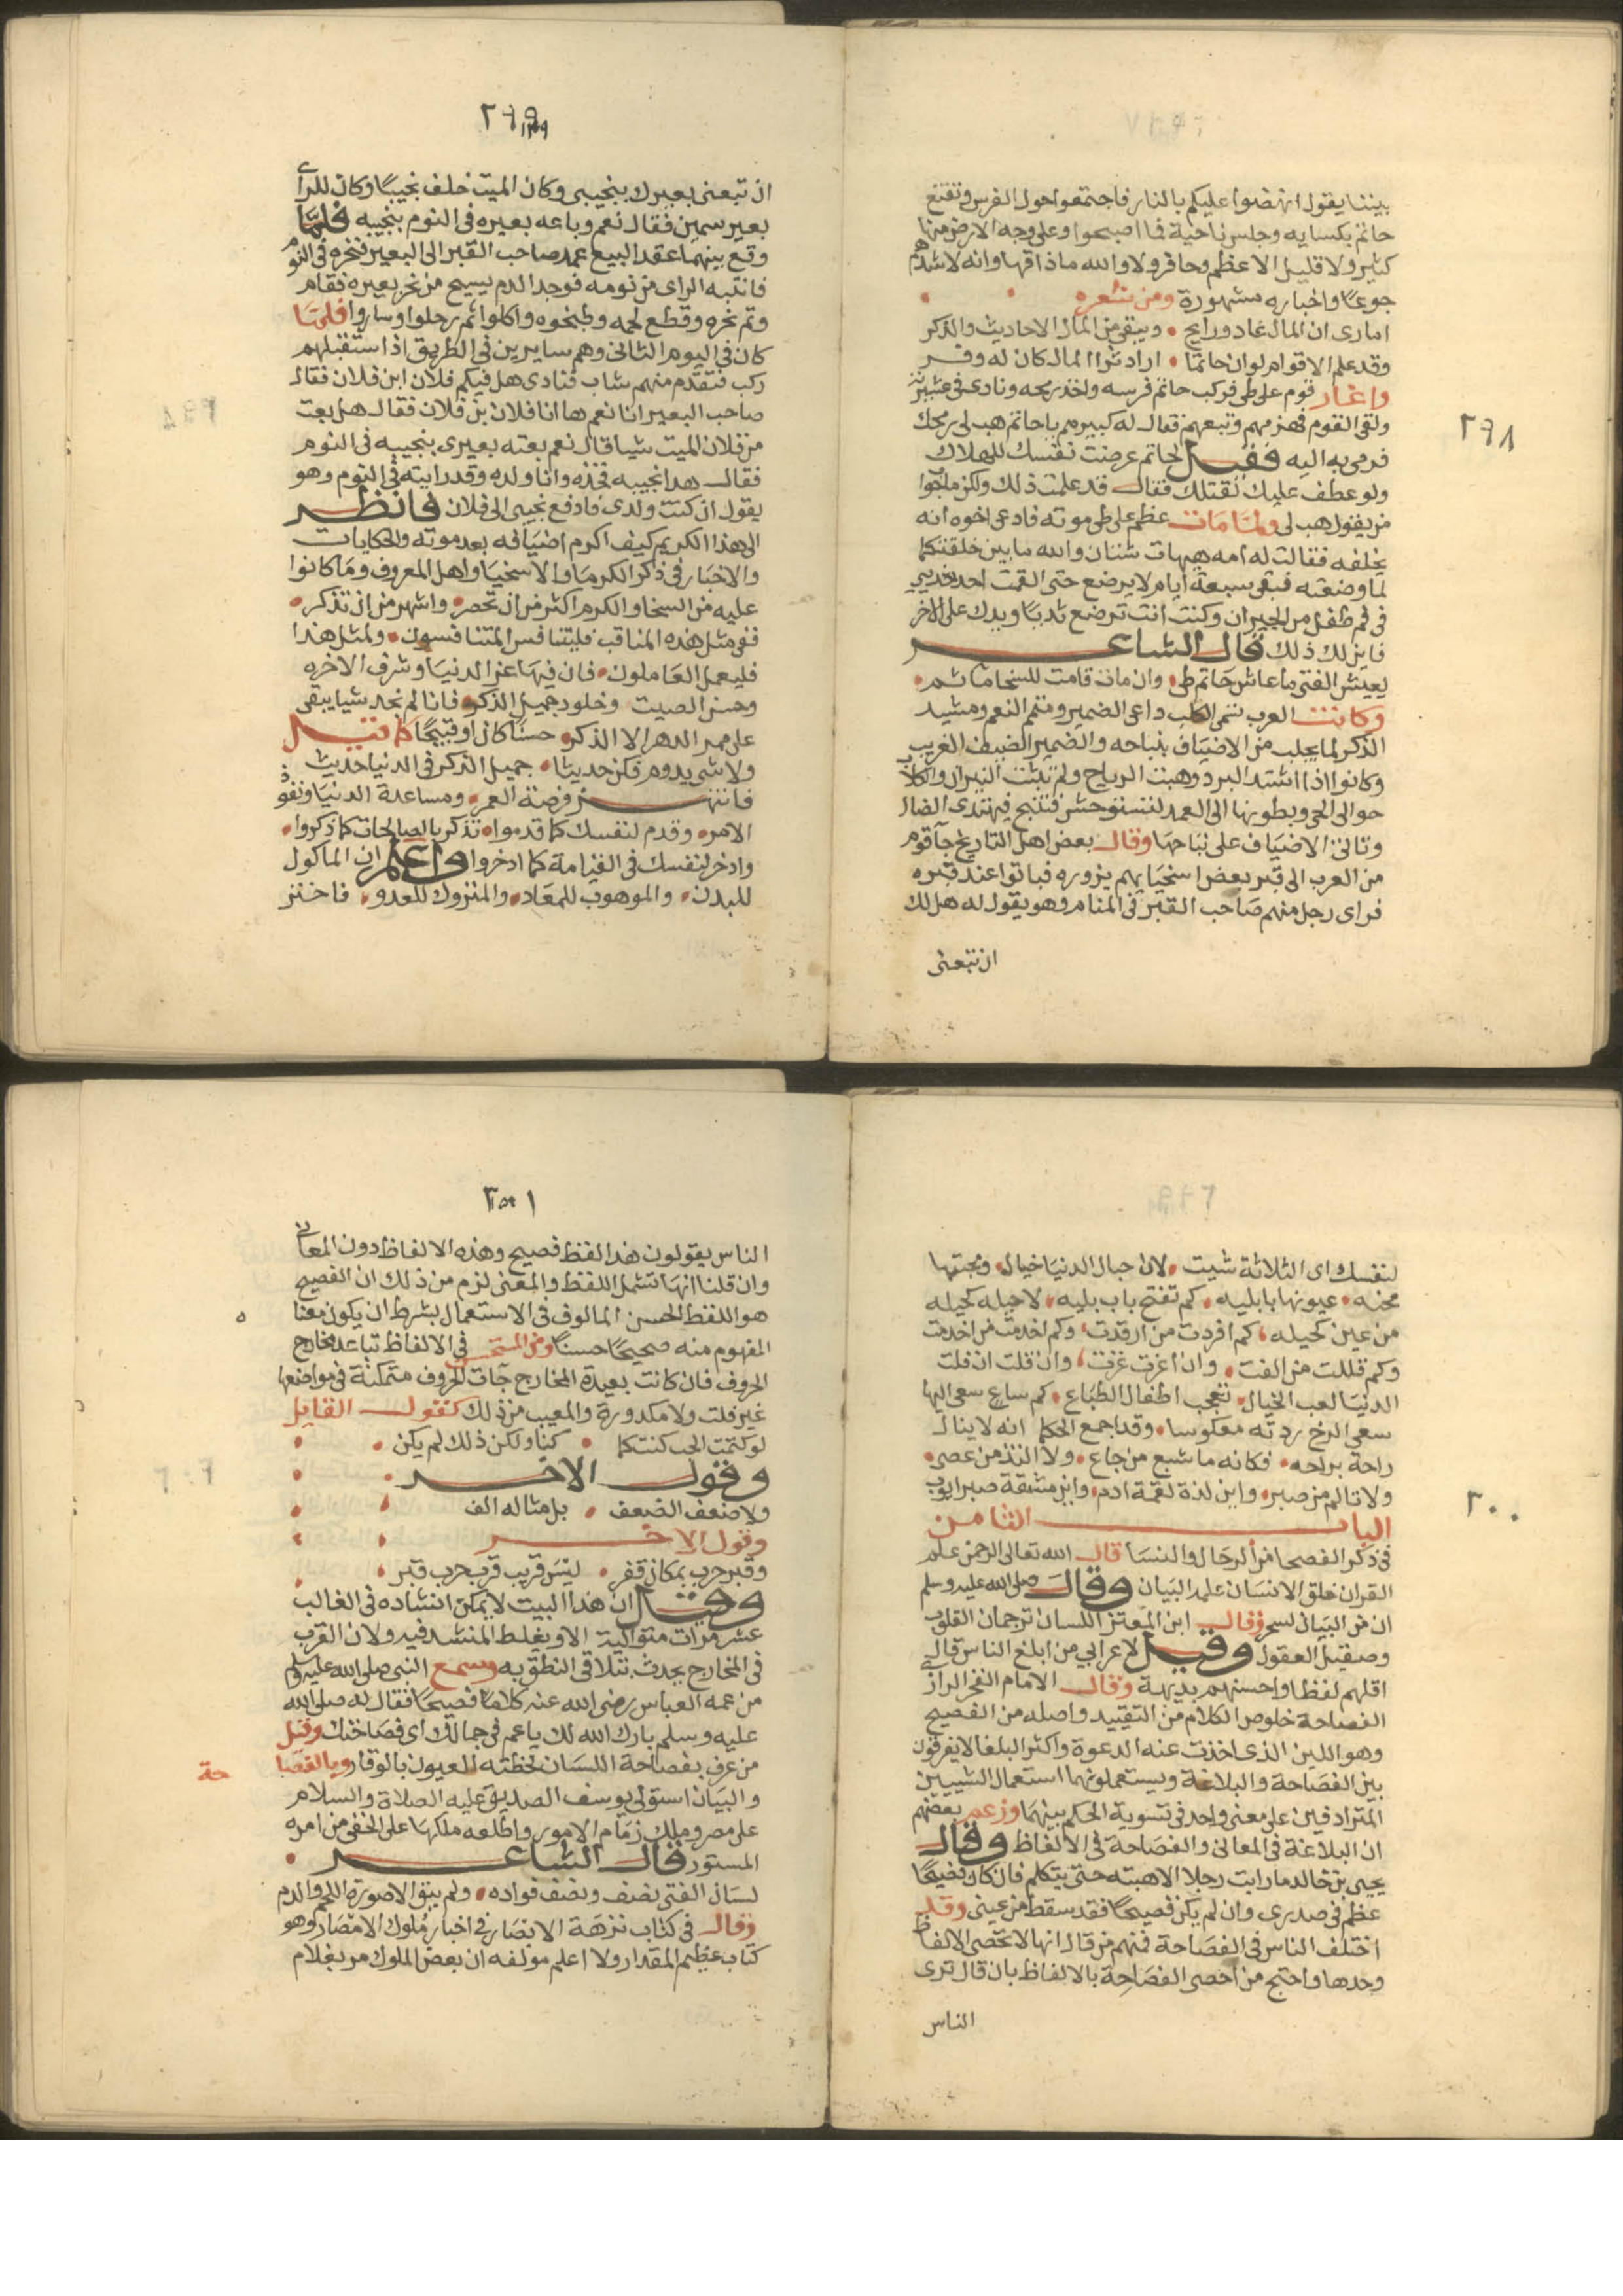 ٢٩٨
بيننا يقول انهضوا عليكم بالنار فاجتمعوا حول الفرس وتقنع
حاتم بكسايه وجلس ناحية فما اصبحوا وعلى وجه الارض منها
كثير ولا قليل الا عظم وحافر ولا والله ما ذاقها وانه لاشدهم
جوعًا واخباره مشهورة ومن شعره
اماوى ان المال غاد ورايح • ويبقى من المال الاحاديث والذكر
وقد علم الاقوام لو ان حاتما • اراد ثرا المال كان له وفر
واغار قوم على طى فركب حاتم فرسه واخذ رمحه ونادى فى عشيرته
ولقى القوم فهزمهم وتبعهم فقال له كبيرهم يا حاتم هب لى رمحك
فرمى به اليه فقيل لحاتم عرضت نفسك للهلاك
ولو عطف عليك لقتلك فقال قد علمت ذلك ولكن ما جوابا
من يقول هب لى ولما مات عظم على طى موته فادعى اخوه انه
يخلفه فقالت له امه هيهات شتان والله ما بين خلقتكما
لما وضعته فبقى سبعة ايام لا يرضع حتى القمت احد ثديي
فى فم طفل من الجيران وكنت انت ترضع ثديًا ويدك على الاخر
فاين لك ذلك قال الشاعر
يعيش الفتى ما عاش حاتم طى • وان مات قامت للسخا ماتم •
وكانت العرب تسمى الكلب داعى الضمير ومتمم النعم ومشيد
الذكر لما يجلب من الاضياف بنباحه والضمير الضيف الغريب
وكانوا اذا اشتد البرد وهبت الرياح ولم تثبت النيران والكلاب
حوالى الحى وبطونها الى العمد لتستوحش فتنبح فيهتدى الضال
وتاتى الاضياف على نباحها وقال بعض اهل التاريخ جآ قوم
من العرب الى قبر بعض اسخيايهم يزوره فباتوا عند قبره
فراى رجل منهم صاحب القبر فى المنام وهو يقول له هل لك
ان تبعنى
٢٩٩
ان تبعنى بعيرك بنجيبى وكان الميت خلف نجيبًا وكان للراى
بعير سمين فقال نعم وباعه بعيره فى النوم بنجيبه فلما
وقع بينهما عقد البيع عمد صاحب القبر الى البعير فنخره فى النوم
فانتبه الراى من نومه فوجد الدم يسيح من نحر بعيره فقام
وتم نحره وقطع لحمه وطبخوه واكلوا ثم رحلوا وساروا فلما
كان فى اليوم الثانى وهم سايرين فى الطريق اذا استقبلهم
ركب فتقدم منهم شاب فنادى هل فيكم فلان ابن فلان فقال
صاحب البعير انا نعم ها انا فلان بن فلان فقال هل بعت
من فلان الميت شيا قال نعم بعته بعيرى بنجيبه فى النوم
فقال هذا نجيبه فخذه وانا ولده وقد رايته فى النوم وهو
يقول ان كنت ولدى فادفع نجيبى الى فلان فانظر
الى هذا الكريم كيف اكرم اضيافه بعد موته والحكايات
والاخبار فى ذكر الكرما والاسخيا واهل المعروف وما كانوا
عليه من السخا والكرم اكثر من ان تحصر • واشهر من ان تذكر •
ففى مثل هذه المناقب فليتنافس المتنافسون • ولمثل هذا
فليعمل العاملون • فان فيها عز الدنيا وشرف الاخره
وحسن الصيت وخلود جميل الذكر • فانا لم نجد شيا يبقى
على ممر الدهر الا الذكر • حسنًا كان او قبيحًا كما قيل
ولا شى يدوم فكن حديثا • جميل الذكر فى الدنيا حديث
فانتهز فرصة العمر • ومساعدة الدنيا ونفوذ
الامر • وقدم لنفسك كما قدموا • تذكر بالصالحات كما ذكروا •
وادخر لنفسك فى القيامة كما ادخروا واعلم ان الماكول
للبدن • والموهوب للمعاد • والمتروك للعدو • فاختر
٣٠٠
لنفسك اى الثلاثة شيت • لان حبال الدنيا خيال • ومحبتها
محنه • عيونها بابليه • كم تفتح باب بليه • لا حيله كحيله
من عين كحيله • كم افردت من ارفدت • وكم اخدمت من اخدمت
وكم قللت من الفت • وان اعزت غزت • وان قلت ان فلت
الدنيا لعب الخيال • تعجب اطفال الطباع • كم ساع سعى اليها
سعى الرخ ردته معكوسا • وقد اجمع الحكما انه لا ينال
راحة براحه • فكانه ما شبع من جاع • ولا التذ من عصى •
ولا تالم من صبر • واين لذة لقمة ادم • واين مشقة صبر ايوب
الباب الثامن
فى ذكر الفصحا من الرجال والنسا قال الله تعالى الرحمن علم
القران خلق الانسان علمه البيان وقال صلى الله عليه وسلم
ان من البيان لسحر وقال ابن المعتز اللسان ترجمان القلوب
وصقيل العقول وقيل لاعرابي من ابلغ الناس قال
اقلهم لفظا واحسنهم بديهة وقال الامام الفخر الرازى
الفصاحة خلوص الكلام من التقييد واصله من الفصيح
وهو اللبن الذى اخذت عنه الدعوة واكثر البلغا لا يفرقون
بين الفصاحة والبلاغة ويستعملونهما استعمال الشييين
المترادفين على معنى واحد فى تسوية الحكم بينهما وزعم بعضهم
ان البلاغة فى المعانى والفصاحة فى الالفاظ وقال
يحيى بن خالد ما رايت رجلا الا هبته حتى يتكلم فان كان فصيحًا
عظم فى صدرى وان لم يكن فصيحًا فقد سقط من عينى وقد
اختلف الناس فى الفصاحة فمنهم من قال انها لا تحصى الالفاظ
وحدها واحتج من احصى الفصاحة بالالفاظ بان قال ترى
الناس
٣٠١
الناس يقولون هذا لفظ فصيح وهذه الالفاظ دون المعانى
وان قلنا انها تشمل اللفظ والمعنى لزم من ذلك ان الفصيح
هو اللفظ الحسن المالوف فى الاستعمال بشرط ان يكون معنا
المفهوم منه صحيحًا حسنًا ومن المستحسن فى الالفاظ تباعد مخارج
الحروف فان كانت بعيدة المخارج جآت الحروف متمكنة فى مواضعها
غير قلت ولا مكدورة والمعيب من ذلك كقول القايل
لو كتمت الحب كنت كما • كنا ولكن ذلك لم يكن •
وقول الاخر
ولا ضعف الضعف • بل مثاله الف
وقول الاخر
وقبر حرب بمكان قفر • ليس قريب قرب حرب قبر •
وقيل ان هذا البيت لا يمكن انشاده فى الغالب
عشر مرات متوالية الا ويغلط المنشد فيه ولان القرب
فى المخارج يحدث تتلاقى النطق به وسمع النبى صلى الله عليه وسلم
من عمه العباس رضى الله عنه كلامًا فصيحًا فقال له صلى الله
عليه وسلم بارك الله لك يا عم فى جمالك اى فصاحتك وقيل
من عرف بفصاحة اللسان لحظته العيون بالوقار وبالفصا حة
والبيان استولى يوسف الصديق عليه الصلاة والسلام
على مصر وملك زمام الامور واطلعه ملكها على الخفى من امره
المستور قال الشاعر
لسان الفتى نصف ونصف فواده • ولم يبق الا صورة اللحم والدم
وقال فى كتاب نزهة الابصار فى اخبار ملوك الامصار وهو
كتاب عظيم المقدار ولا اعلم مولفه ان بعض الملوك مر بغلام